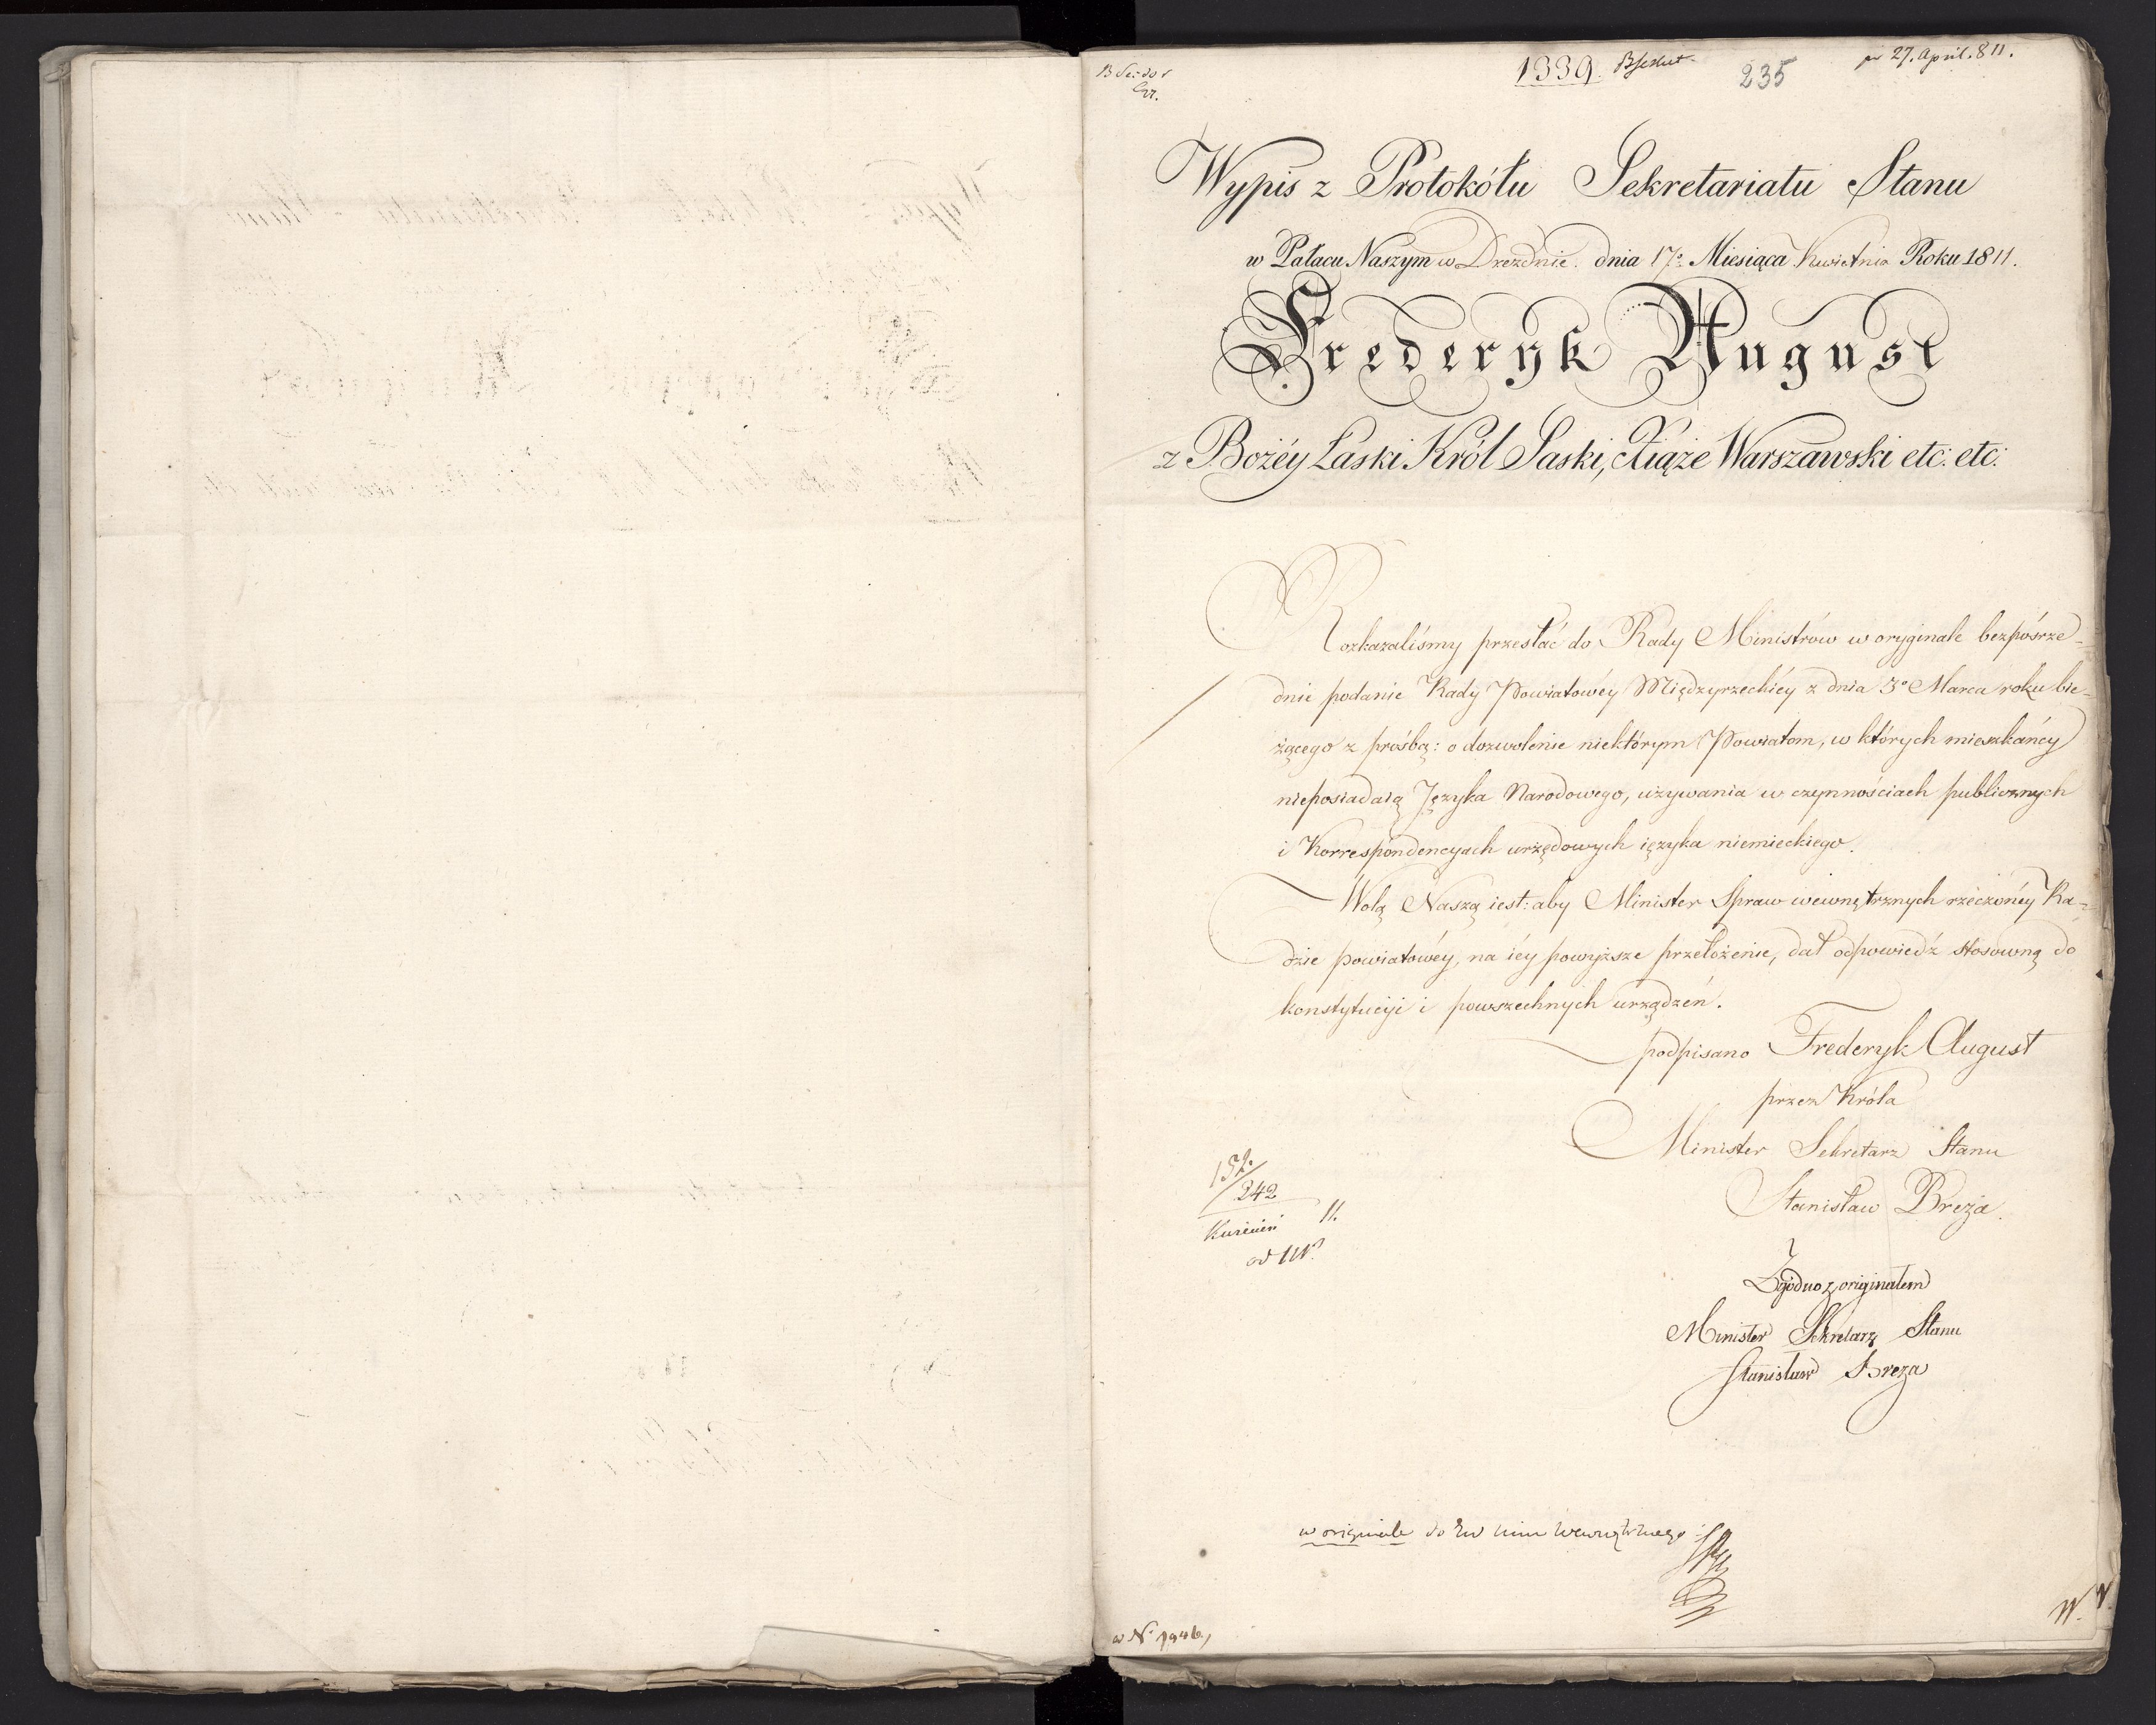 1339.
235
pr 27. April. 811.
Wypis z Protokółu Sekretariatu Stanu
w Pałacu Naszym w Dreznie. dnia 17º Miesiąca Kwietnia Roku 1811.
Frederyk August
z Bożéy Łaski Król Saski, Xiąże Warszawski etc: etc:
Rozkazaliśmy przesłać do Rady Ministrów w oryginale bezpósrze=
dnie podanie Rady Powiatowéy Międzyrzeckiéy z dnia 3º Marca roku bie=
żącego z prośbą: o dozwolenie niektórym Powiatom, w których mieszkańcy
nieposiadaią Języka Narodowego, używania w czynnościach publicznych
i Korrespondencyach urzędowych ięzyka niemieckiego.
Wolą Naszą iest: aby Minister Spraw wewnętrznych rzeczonéy Ra=
dzie powiatowéy, na iéy powyższe przełożenie, dał odpowiedź stosowną do
konstytucyi i powszechnych urządzeń.
podpisano Frederyk August
przez Króla
Minister Sekretarz Stanu
Stanisław Breza.
242
11.
Zgodno z originałem
Minister Sekretarz Stanu
Stanisław Breza
w originale do